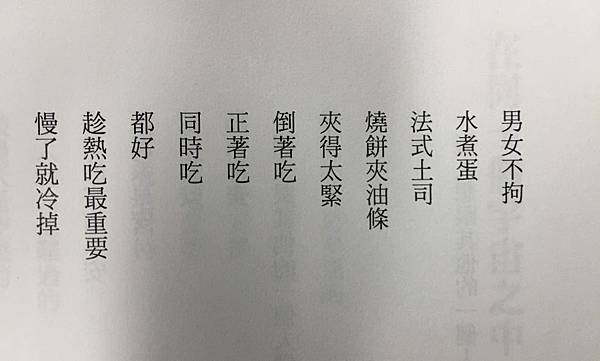 男女不拘
水煮蛋
法式土司
燒餅夾油條
夾得太緊
倒著吃
正著吃
同時吃
都好
趁熱吃最重要
慢了就冷掉